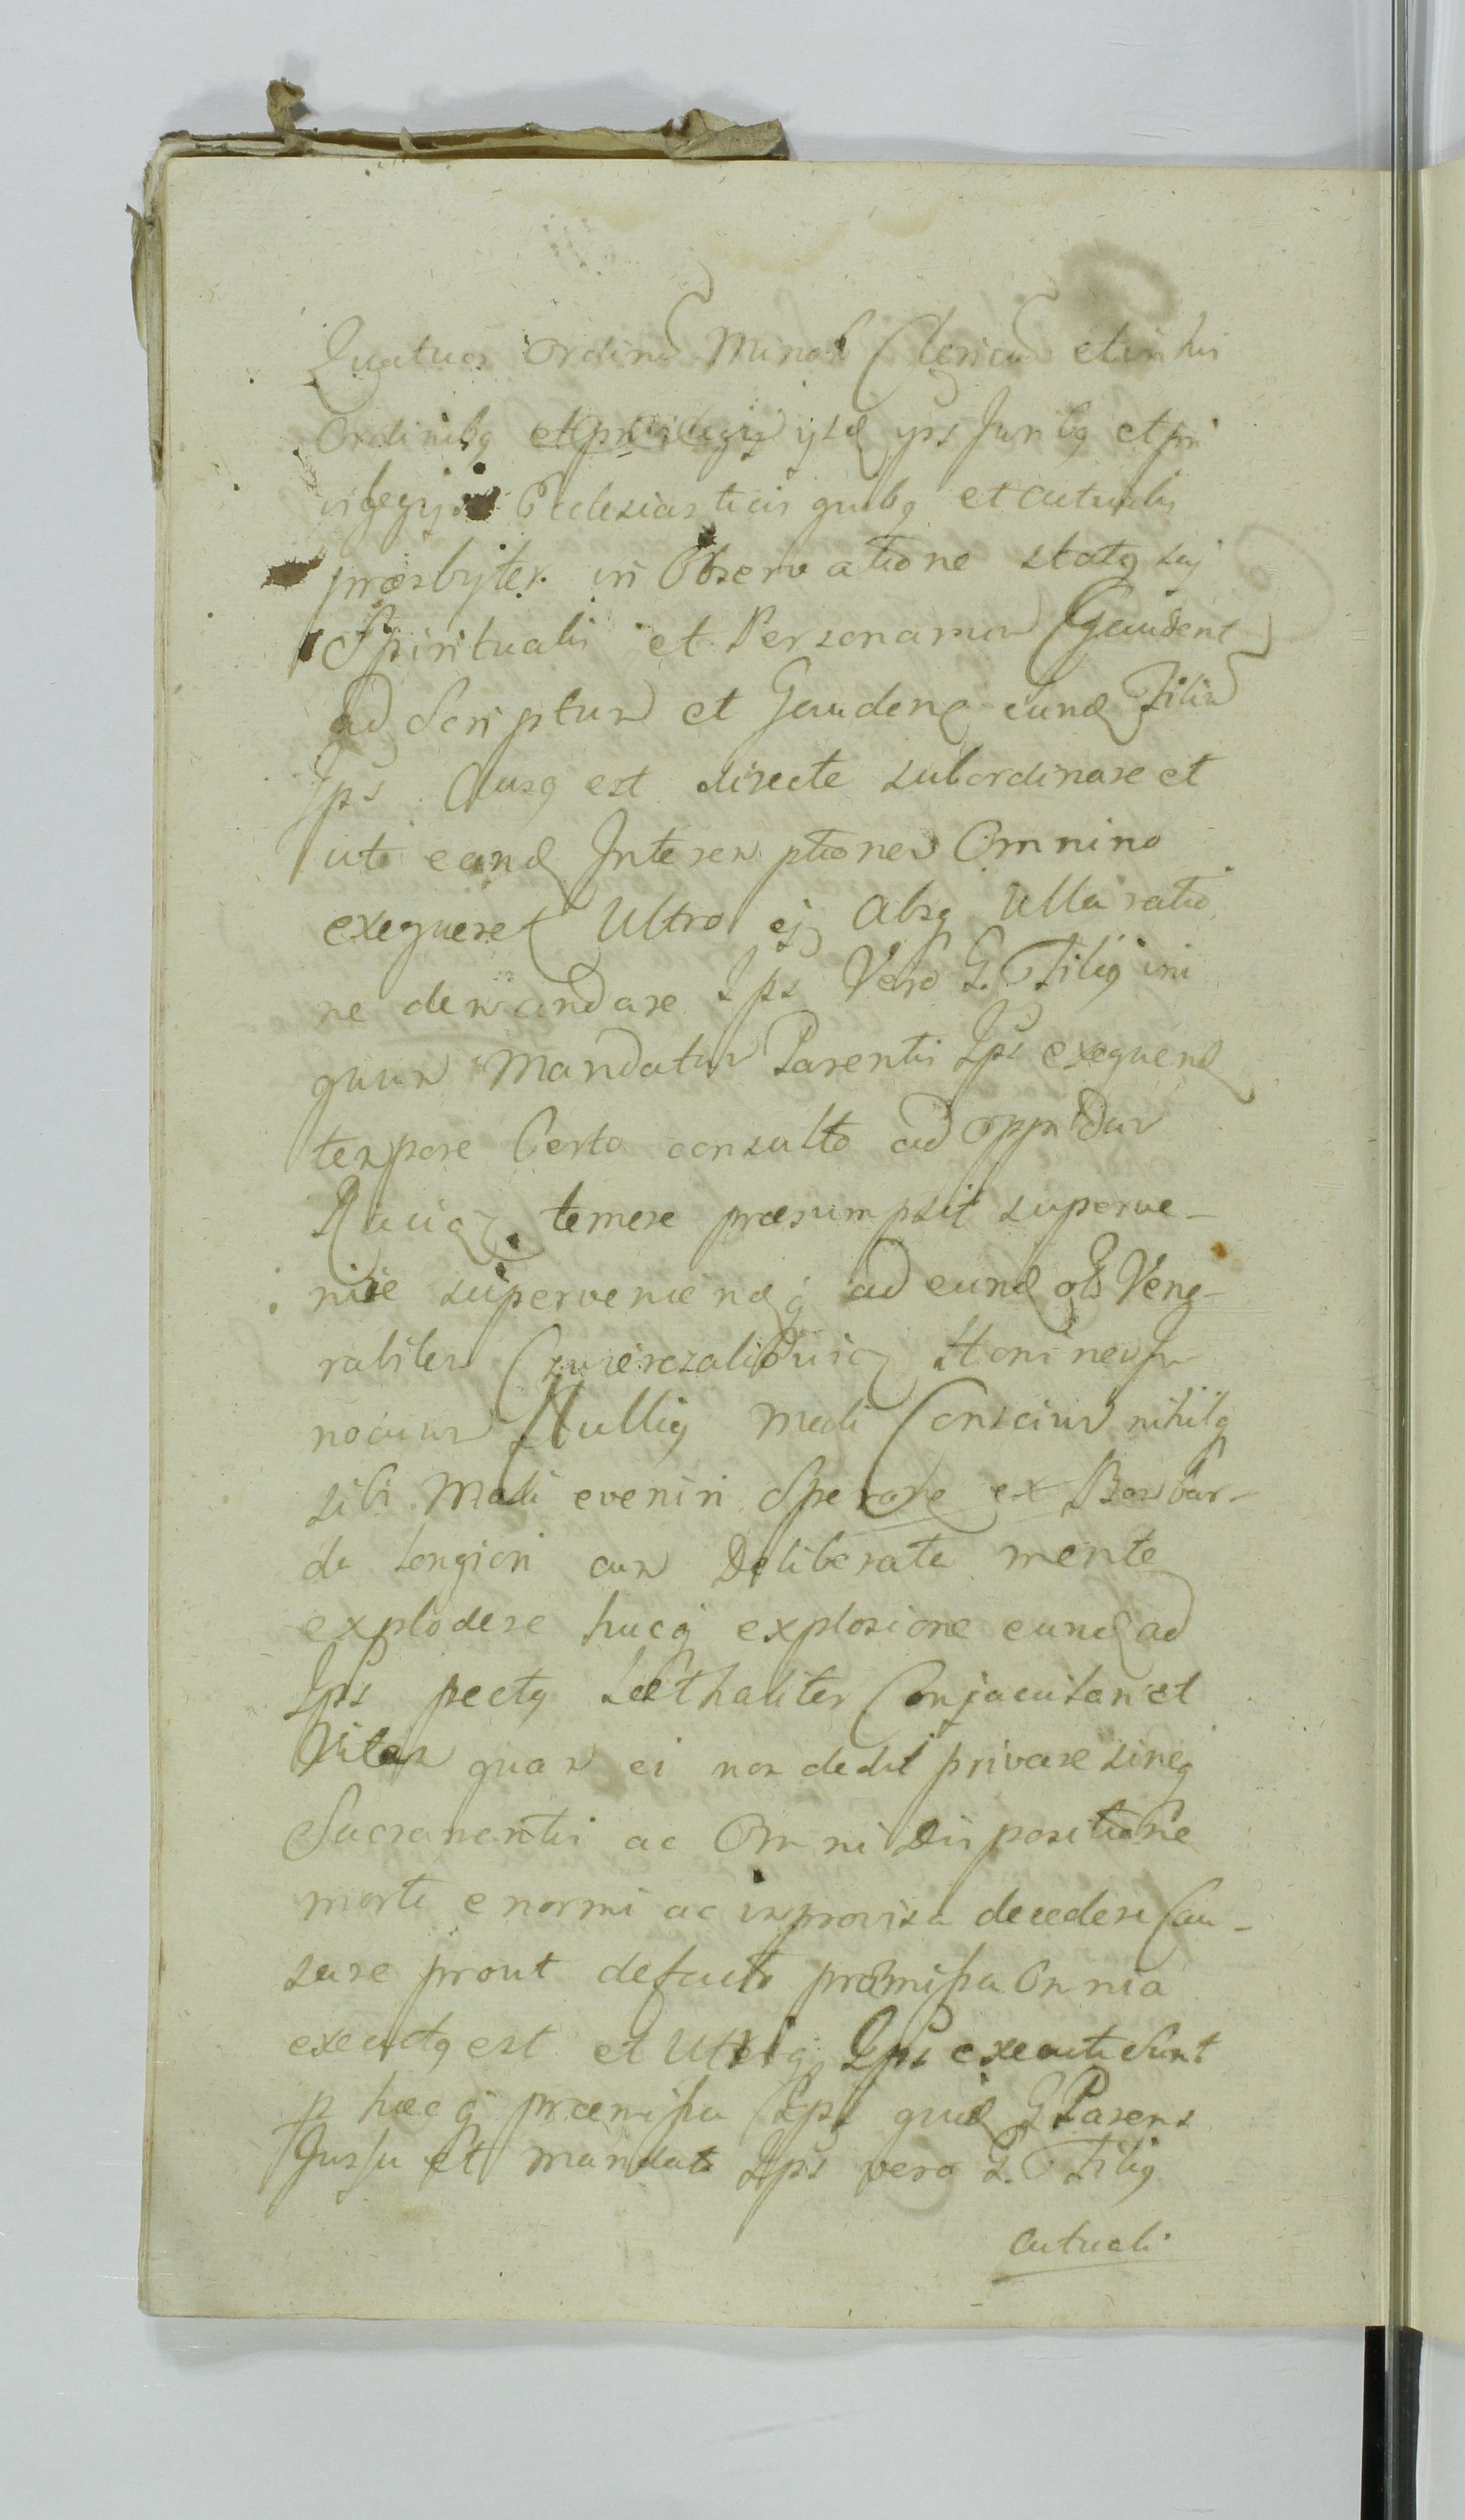 Quatuor Ordinũ Minor Clericũ et in his
Ordinibq et privilegijs ijsd ips Juribq et pri
vilegijs Ecclesiasticis quibq et actualis
præsbyter in Observatione statq sui
Spiritualis et Personarum Gaudent
ad Scriptum et Gaudenq eund Filiũ
Ips Ausq est directe subordinare et
uti eand Interemptionem Omnino
exequeret Ultro ej Absq Ulla ratio
ne demandare Ips Vero G. Filiq ini
quum Mandatum Parentis Ips exequend
tempore Certo consulto ad oppidum
temere præsumpsit superve-
nire superveniendq ad eund ols Vene-
rabilem Hominem In
nocuum Nulliq Mali Conscium nihilq
sibi Mali eveniri Sperare ex Bombar-
da longiori cum Deliberata mente
explodere hucq explosione eund ad
Ips pectq Læthaliter Conjaculari et
Vitam quam ei non dedit privare sineq
Sacramentis ac Omni Dispositione
morte enormi ac improvisa decedere Cau-
sare prout defacto præmissa Omnia
executq est et Utriq Ips executi Sunt
p hæcq præmissa Ips quid G Parens
Jussu et mandato Ips vero G. Filiq
actuali